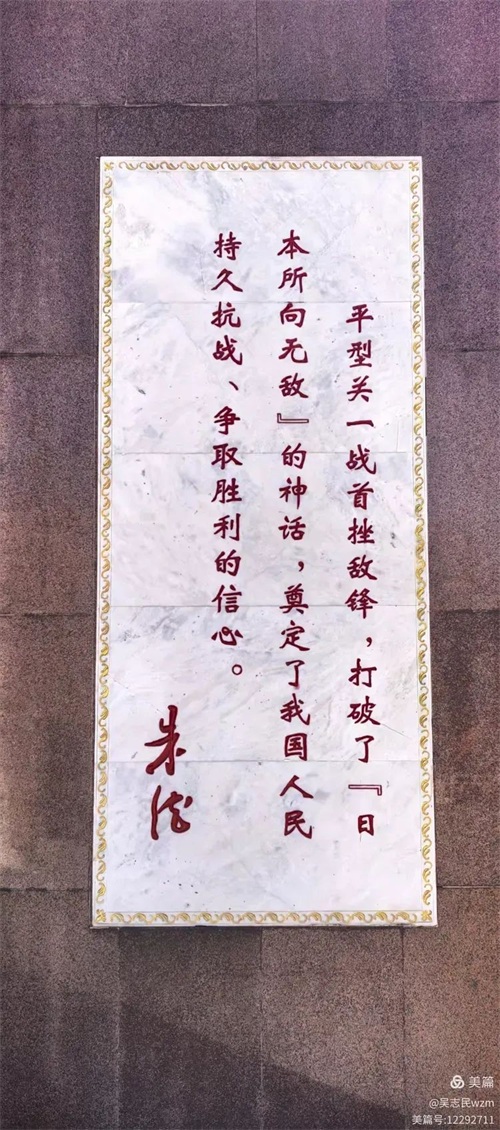 平型关一战首挫敌锋，打破了『日
本所向无敌』的神话，奠定了我国人民
持久抗战、争取胜利的信心。
朱德
美篇
@吴志民wzm
美篇号:12292711